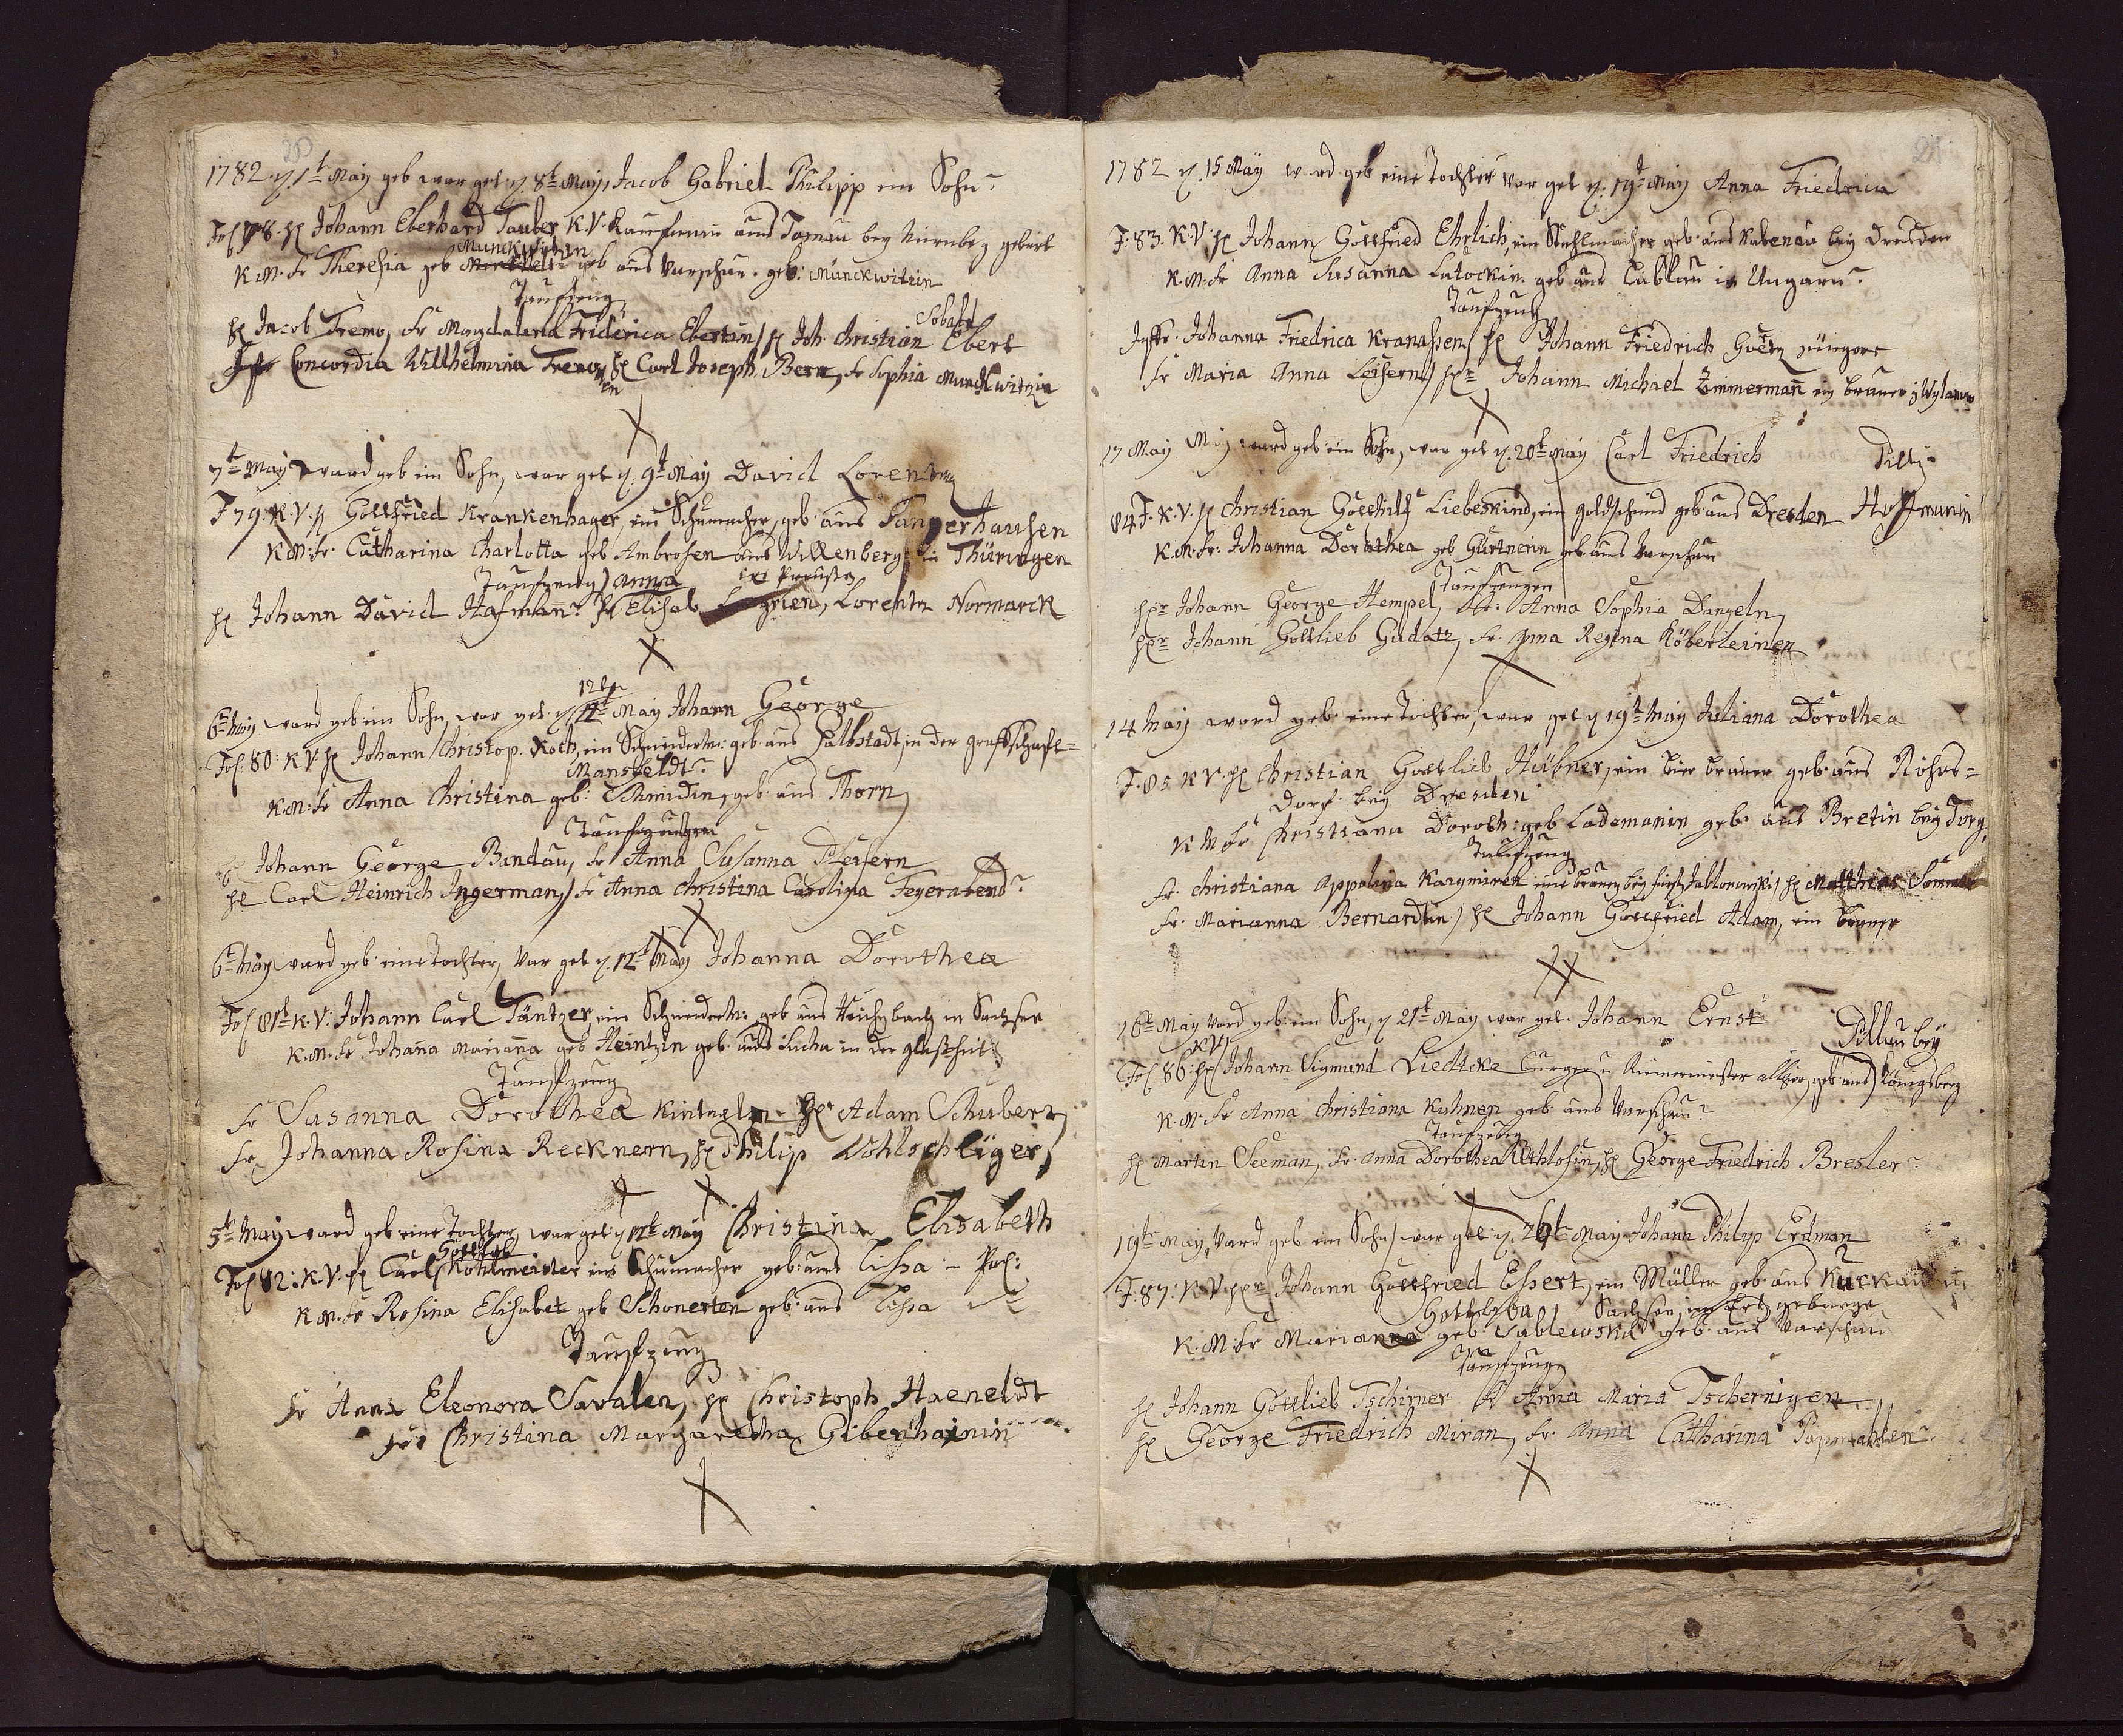 20
1782. d. 1t May geb war get. d. 8t May, Jacob Gabriel Philipp ein Sohn
Fol 78. H Johann Eberhard Tauber K.V. Kaufmann aus bey Nürnberg gebürt
Munckwitzin
K.M. Fr Theresia geb geb aus Varschau. geb: Munckwitzin
Taufzeug
H Jacob Fremo, Fr Magdalena Friderica Ebertin, H Joh. Christian Ebert
Concordia Willhelmina Fremo, H Carl Joseph Bern, Fr Sophia Munckwitzin
7t May ward geb ein Sohn, war get d. 9t May David Lorentz
F 79. K.V. H Gottfried Krankenhager, ein Schumacher, geb. aus Sangerhausen
K.M. Fr. Catharina Charlotta geb Ambrosen aus Willenberg in Thüringen
Taufzeug Anna in Preußen
H Johann David Hafman. Elisab Lorentz Normarck
12t
6t May ward geb ein Sohn war get. d May Johann George
Fol. 80. K V. H Johann Christop. Koch, ein Schneider geb. aus Halbstadt, in der graffschaft=
Mansfeldt.
K.M. Fr Anna Christina geb: Schmidin, geb. aus Thorn
Taufzeugen
H Johann George Bandau, Fr Anna Susanna Pfeifern
H Carl Heinrich Ingerman, Fr Anna Christina Carolina Feyerabend
6t May ward geb. eine Tochter, War get d. 12t May Johanna Dorothea
Fol 81t K.V. Johann Carl Täntzer, ein Schneider geb aus in Sachsen
K.M. Fr Johanna Marianna geb Heintzin geb. aus in der
Taufzeug
Fr Susanna Dorothea H Adam Schubert,
Fr Johanna Rosina Recknern, H Philip Wohlschläger,
5t May ward geb. eine Tochter, war get. d 12t May Christina Elisabeth
Gottlob
Fol 82: K.V. H Carl Kohlmeister ein Schumacher geb. aus Lissa Pol:
K.M. Fr Rosina Elisabet geb Schonerten geb. aus Lissa
Taufzeug
Fr Anna Eleonora Savalen, H Christoph Haeneldt
Fr Christina Margaretha Gibenhainin
21
1782 d. 15 May ward geb eine Tochter war get d. 19t May Anna Friedrica
F. 83. K V. H Johann Gottfried Ehrlich, ein Stuhlmacher geb. aus Rabenau bey Dresden
K.M. Fr Anna Susanna Latockin. geb aus Lublau in Ungarn
Taufzeug
Jgffr. Johanna Friedrica Kranassen, H Johann Friedrich Goetz jüngere
Fr Maria Anna Leisern, Hr Johann Michael Zimmermañ ein Brauer
17 May ward geb. ein Sohn, war get d. 20t May Carl Friedrich
84 F. K.V. H Christian Gotthilf Liebeskind, ein goldschmid geb aus Dresden Hoffmanin
K.M. Fr. Johanna Dorothea geb Gärtnerin geb. aus Varschau
Taufzeugen
Hr Johann George Hempel, Fr. Anna Sophia Dangeln
Hr Johann Gottlieb Gudatz, Fr. Anna Regina Röberleinen
14 May ward geb. eine Tochter, war get d 19t May Juliana Dorothea
F. 85 K V. H Christian Gottlieb Hübner, ein bier brauer geb. aus Röhrs=
dorf bey Dresden
K M Fr Christiana Doroth. geb Lademanin geb. aus Bretin bey Torg.
Taufzeug
Fr. Christiana Appolina eine bey fürst Jablonowski, H Matthias Sommer
Fr. Marianna Bernardtin, H Johann Gottfried Adam, ein Brauer
16t May Ward geb. ein Sohn, d 21t May war get. Johann Ernst
K V Pillau bey
Fol 86. H Johann Sigmund Liedtcke Bürger u Riemermeister allhier, geb aus Königsberg
K.M. Fr Anna Christiana Kuhnen geb. aus Varschau
Taufzeug
H Martin Seeman, Fr. Anna Dorothea H George Friedrich Bresler
19t May, Ward geb ein Sohn, war get. d. 26t May Johann Philip Erdman
F. 87: K.V. Hr Johann Gottfried Essert, ein Müller geb. aus
Sachsen, im Ertz geburge
K.M. Fr Marianna geb. Sablewska geb. aus Varschau
Taufzeug
H Johann Gottlieb Tschirner Fr Anna Maria Tschernigen
H George Friedrich Miran, Fr. Anna Catharina